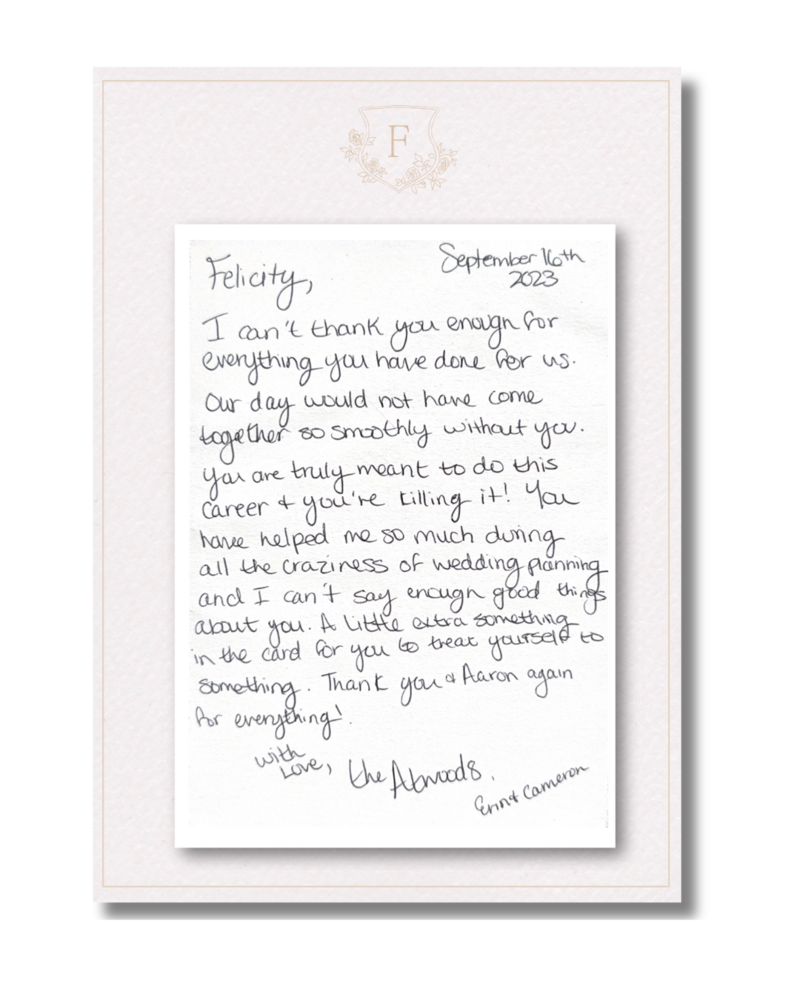 F
September 16th
2023
Felicity,
I can't thank you enough for
everything you have done for us.
Our day would not have come
together so smoothly without you.
You are truly meant to do this
career & you're killing it! You
have helped me so much during
all the craziness of wedding planning
and I can't say enough good things
about you. A little extra something
in the card for you to treat yourself to
something. Thank you & Aaron again
for everything!
with
Love, the Atwoods.
Erin & Cameron